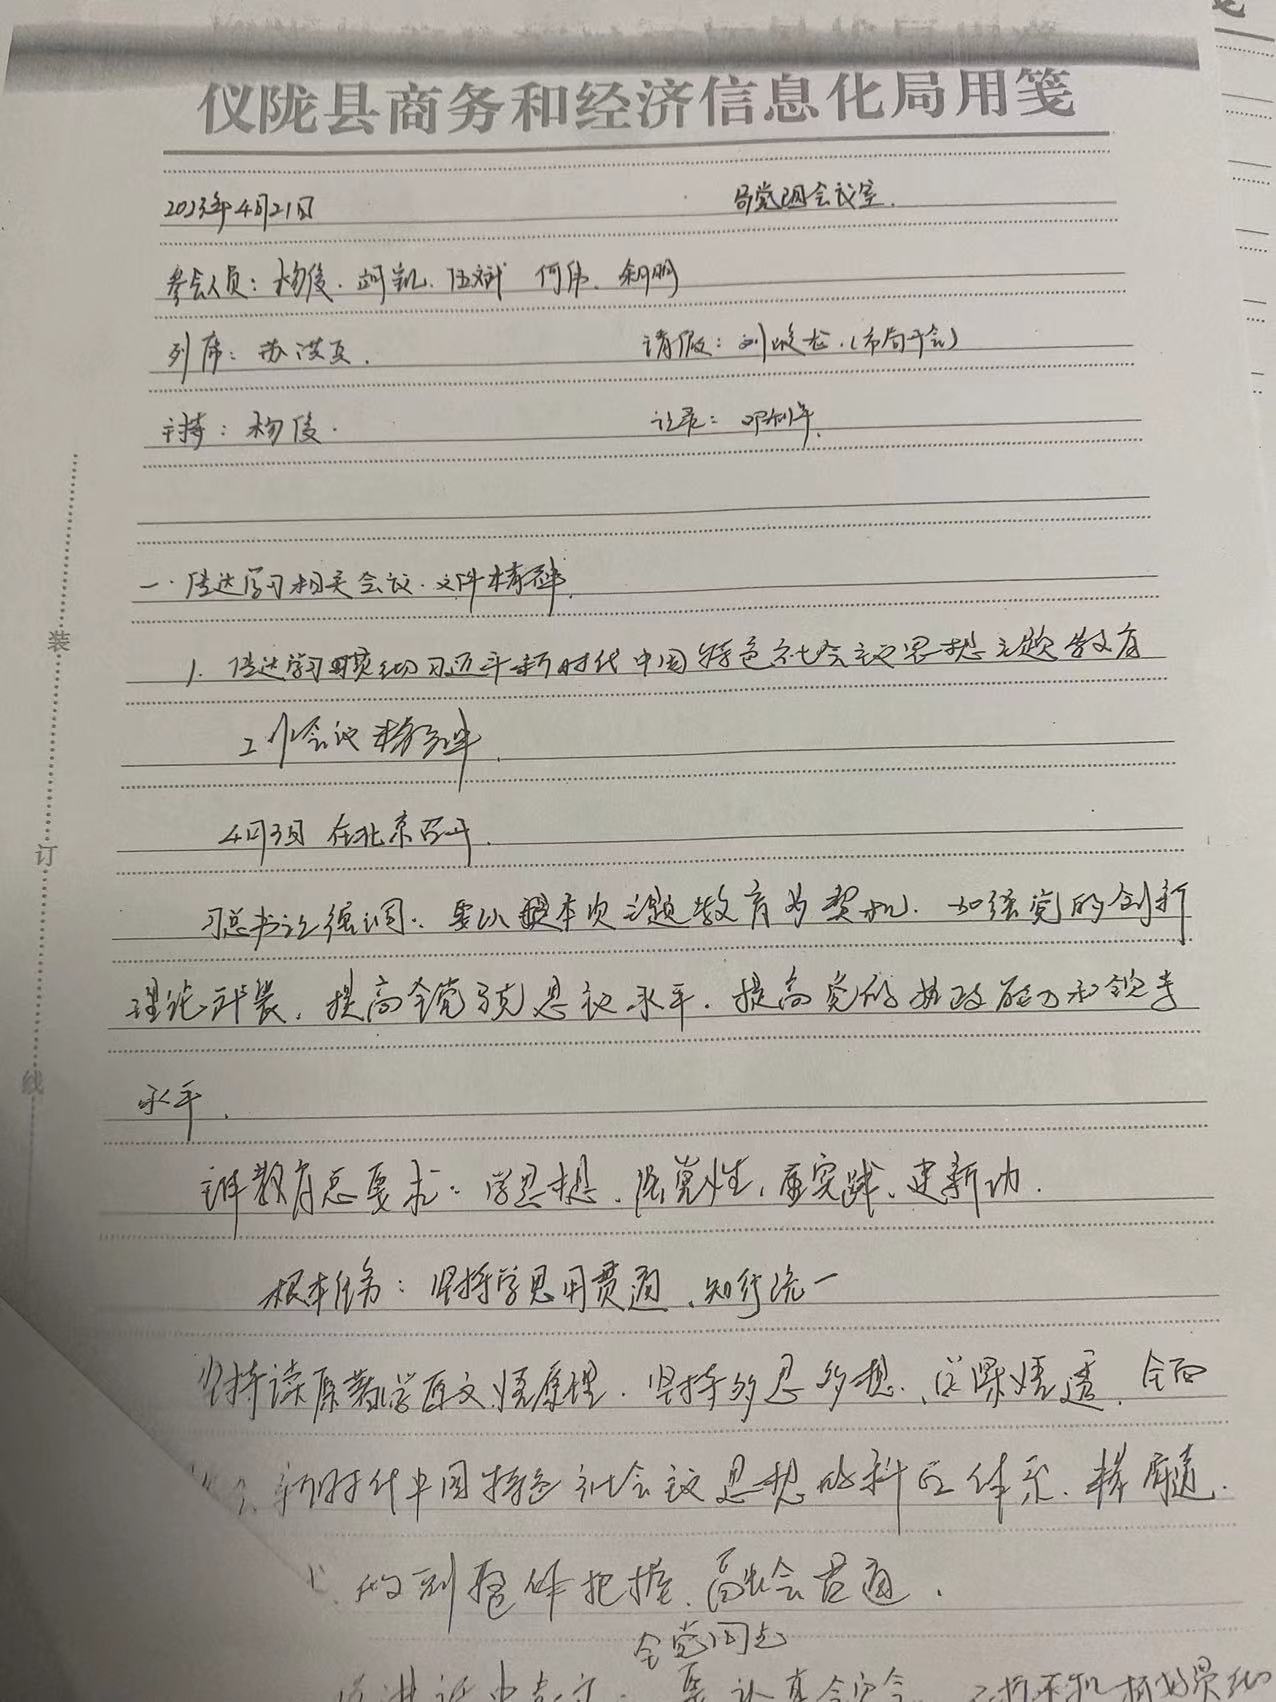 仪陇县商务和经济信息化局用笺
2023年4月21日 局党组会议室.
参会人员：杨俊．胡凯．伍斌 何伟．
列席：苏洪 请假：刘 龙．(市局开会)
主持：杨俊． 记录：邓
一．传达学习相关会议．文件精神．
1．传达学习 贯彻习近平新时代中国特色社会主义思想主题教育
工作会议精神．
4月3日 在北京召开．
习总书记强调：要以 本次主题教育为契机．加强党的创新
理论武装，提高全党 思 水平．提高党的执政能力和领导
水平．
主题教育总要求：学思想．强党性，重实践．建新功．
根本任务：坚持学思用贯通．知行统一
坚持读原著学原文悟原理．坚持多思多想．学深悟透．全面
新时代中国特色社会主义思想的科学体系．精髓．
做到整体把握．融会贯通．
全党同志
要认真
装
订
线